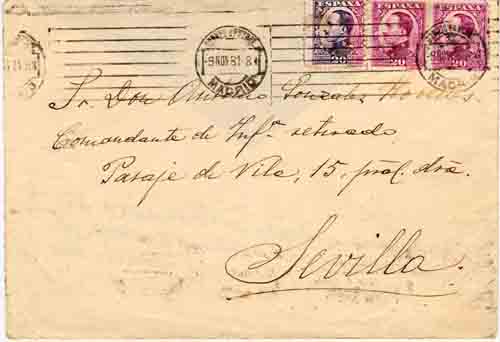 ESPAÑA ESPAÑA ESPAÑA
20 20 20
9 NOV 31 8
MADRID
MADRID
Sr. Don Antonio Gonzalez
Comandante de Infª retirado
Pasaje de Vila, 15, pral. dra.
Sevilla.